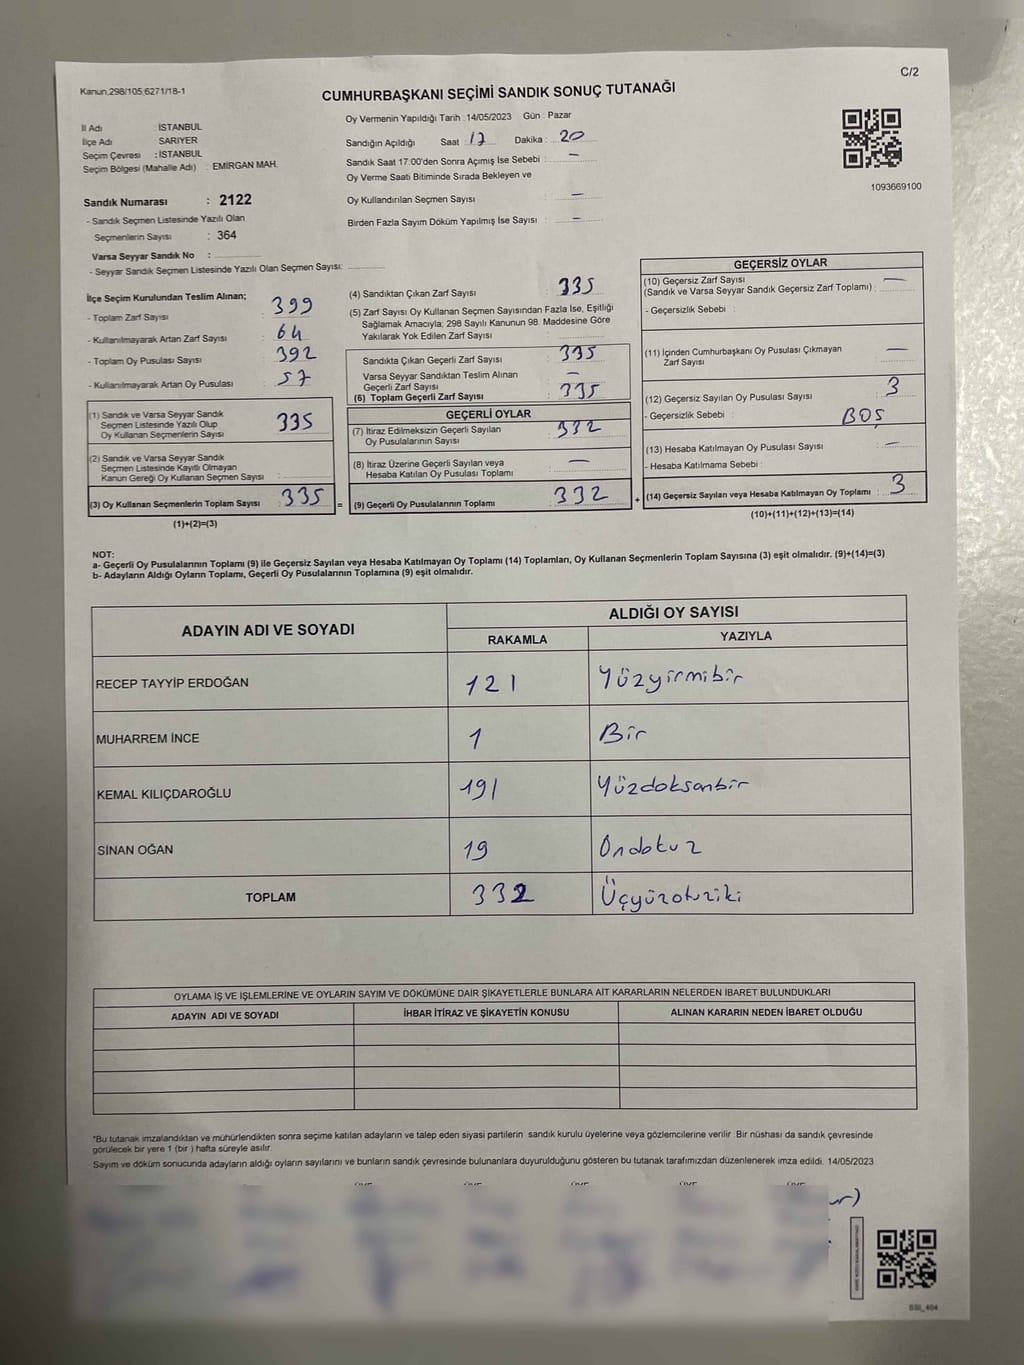 C/2
Kanun,298/105,6271/18-1
CUMHURBAŞKANI SEÇİMİ SANDIK SONUÇ TUTANAĞI
İl Adı : İSTANBUL
İlçe Adı : SARIYER
Seçim Çevresi : İSTANBUL
Seçim Bölgesi (Mahalle Adı) : EMİRGAN MAH.
Sandık Numarası : 2122
- Sandık Seçmen Listesinde Yazılı Olan
Seçmenlerin Sayısı : 364
Varsa Seyyar Sandık No :
- Seyyar Sandık Seçmen Listesinde Yazılı Olan Seçmen Sayısı:
Oy Vermenin Yapıldığı Tarih : 14/05/2023 Gün : Pazar
Sandığın Açıldığı Saat : 17 Dakika : 20
Sandık Saat 17:00'den Sonra Açımış İse Sebebi : —
Oy Verme Saati Bitiminde Sırada Bekleyen ve
Oy Kullandırılan Seçmen Sayısı : —
Birden Fazla Sayım Döküm Yapılmış İse Sayısı : —
1093669100
İlçe Seçim Kurulundan Teslim Alınan;
- Toplam Zarf Sayısı : 399
- Kullanılmayarak Artan Zarf Sayısı : 64
- Toplam Oy Pusulası Sayısı : 392
- Kullanılmayarak Artan Oy Pusulası : 57
(1) Sandık ve Varsa Seyyar Sandık
Seçmen Listesinde Yazılı Olup
Oy Kullanan Seçmenlerin Sayısı : 335
(2) Sandık ve Varsa Seyyar Sandık
Seçmen Listesinde Kayıtlı Olmayan
Kanun Gereği Oy Kullanan Seçmen Sayısı :
(3) Oy Kullanan Seçmenlerin Toplam Sayısı : 335
(1)+(2)=(3)
(4) Sandıktan Çıkan Zarf Sayısı : 335
(5) Zarf Sayısı Oy Kullanan Seçmen Sayısından Fazla İse, Eşitliği
Sağlamak Amacıyla; 298 Sayılı Kanunun 98. Maddesine Göre
Yakılarak Yok Edilen Zarf Sayısı :
Sandıkta Çıkan Geçerli Zarf Sayısı : 335
Varsa Seyyar Sandıktan Teslim Alınan
Geçerli Zarf Sayısı : —
(6) Toplam Geçerli Zarf Sayısı : 335
GEÇERLİ OYLAR
(7) İtiraz Edilmeksizin Geçerli Sayılan
Oy Pusulalarının Sayısı : 332
(8) İtiraz Üzerine Geçerli Sayılan veya
Hesaba Katılan Oy Pusulası Toplamı : —
= (9) Geçerli Oy Pusulalarının Toplamı : 332 +
GEÇERSİZ OYLAR
(10) Geçersiz Zarf Sayısı
(Sandık ve Varsa Seyyar Sandık Geçersiz Zarf Toplamı) : —
- Geçersizlik Sebebi :
(11) İçinden Cumhurbaşkanı Oy Pusulası Çıkmayan
Zarf Sayısı : —
(12) Geçersiz Sayılan Oy Pusulası Sayısı : 3
- Geçersizlik Sebebi : BOŞ
(13) Hesaba Katılmayan Oy Pusulası Sayısı : —
- Hesaba Katılmama Sebebi :
(14) Geçersiz Sayılan veya Hesaba Katılmayan Oy Toplamı : 3
(10)+(11)+(12)+(13)=(14)
NOT:
a- Geçerli Oy Pusulalarının Toplamı (9) ile Geçersiz Sayılan veya Hesaba Katılmayan Oy Toplamı (14) Toplamları, Oy Kullanan Seçmenlerin Toplam Sayısına (3) eşit olmalıdır. (9)+(14)=(3)
b- Adayların Aldığı Oyların Toplamı, Geçerli Oy Pusulalarının Toplamına (9) eşit olmalıdır.
ADAYIN ADI VE SOYADI ALDIĞI OY SAYISI
RAKAMLA YAZIYLA
RECEP TAYYİP ERDOĞAN 121 Yüzyirmibir
MUHARREM İNCE 1 Bir
KEMAL KILIÇDAROĞLU 191 Yüzdoksanbir
SİNAN OĞAN 19 Ondokuz
TOPLAM 332 Üçyüzotuziki
OYLAMA İŞ VE İŞLEMLERİNE VE OYLARIN SAYIM VE DÖKÜMÜNE DAİR ŞİKAYETLERLE BUNLARA AİT KARARLARIN NELERDEN İBARET BULUNDUKLARI
ADAYIN ADI VE SOYADI İHBAR İTİRAZ VE ŞİKAYETİN KONUSU ALINAN KARARIN NEDEN İBARET OLDUĞU
*Bu tutanak imzalandıktan ve mühürlendikten sonra seçime katılan adayların ve talep eden siyasi partilerin sandık kurulu üyelerine veya gözlemcilerine verilir. Bir nüshası da sandık çevresinde
görülecek bir yere 1 (bir ) hafta süreyle asılır.
Sayım ve döküm sonucunda adayların aldığı oyların sayılarını ve bunların sandık çevresinde bulunanlara duyurulduğunu gösteren bu tutanak tarafımızdan düzenlenerek imza edildi. 14/05/2023